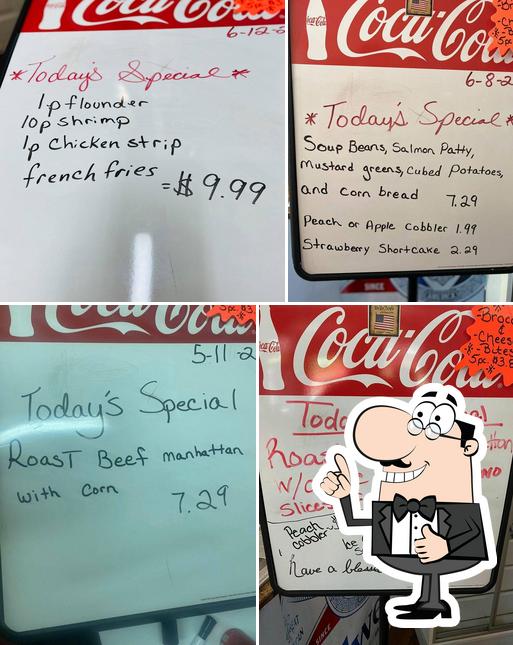 Coca-Cola
6-12-
*Today's Special*
1p flounder
10p shrimp
1p chicken strip
french fries = $ 9.99
Coca-Cola
6-8-2
* Today's Special *
Soup Beans, Salmon Patty,
Mustard greens, Cubed Potatoes,
and corn bread 7.29
Peach or Apple Cobbler 1.99
Strawberry Shortcake 2.29
SINCE
Coca-Cola
5-11-2
Today's Special
Roast Beef manhattan
with corn 7.29
Coca-Cola
-Broc
&
Chees
-Bites
5pc. $3.
Peach
cobbler
Have a
SINCE